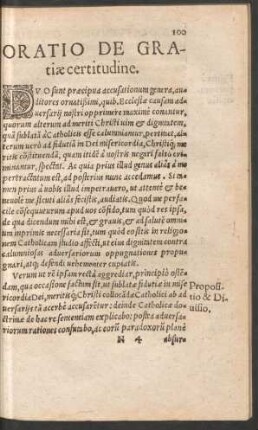 100
ORATIO DE GRA-
tiæ certitudine.
DVO sunt præcipua accusationum genera, au-
ditores ornatissimi, quib. Ecclesiæ causam ad-
uersarij nostri opprimere maximè conantur,
quorum alterum ad meriti Christi uim & dignitatem,
quã sublatã à Catholicis esse calumniantur, pertinet, al-
terum uerò ad fiduciã in Dei misericordia, Christiq; me-
ritis cõstituendã, quam itidẽ à nostris negari falsò cri-
minantur, spectat. Ac quia prius illud genus aliâs à me
pertractatum est, ad posterius nunc accedamus. Si ta-
men prius à uobis illud impetrauero, ut attentè & be-
neuolè me sicuti aliâs fecistis, audiatis. Quod me perfa-
cile cõsequuturum apud uos cõfido, tum quòd res ipsa,
de qua dicendum mihi est, & grauis, & ad salutẽ omni-
um inprimis necessaria sit, tum quòd eo sitis in religio-
nem Catholicam studio affecti, ut eius dignitatem contra
calumniosas aduersariorum oppugnationes propu-
gnari, atq; defendi uehementer cupiatis.
Verum ut rẽ ipsam rectà aggrediar, principiò ostẽ-
dam, qua occasione factum sit, ut sublatæ fiduciæ in mise-
ricordia Dei, meritisq; Christi collocãdæ Catholici ab ad
uersarijs tã acerbè accusarẽtur: deinde Catholicæ do-
ctrinæ de hac re sententiam explicabo: postea aduersa-
riorum rationes confutabo, ac eorũ paradoxorũ planè
Proposi-
tio & Di-
uisio.
N 4 absur-